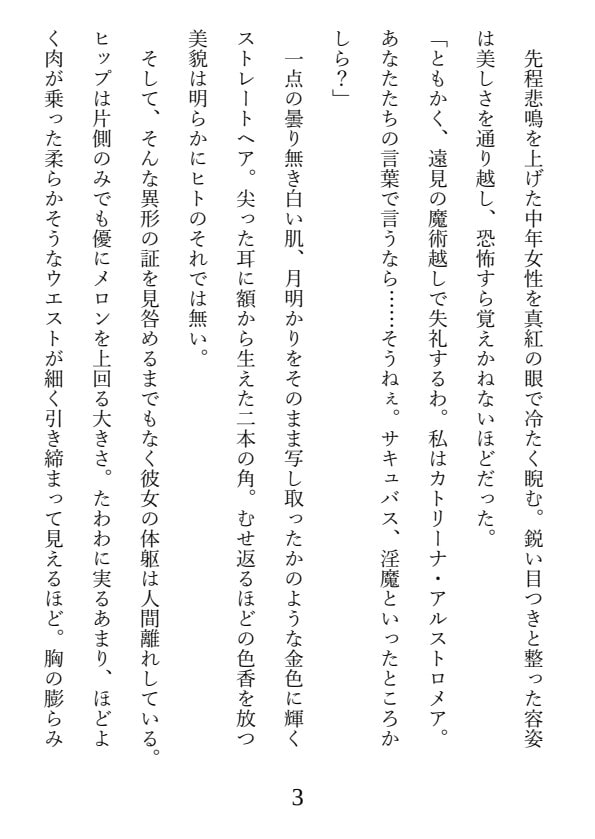 先程悲鳴を上げた中年女性を真紅の眼で冷たく睨む。鋭い目つきと整った容姿
は美しさを通り越し、恐怖すら覚えかねないほどだった。
「ともかく、遠見の魔術越しで失礼するわ。私はカトリーナ・アルストロメア。
あなたたちの言葉で言うなら……そうねぇ。サキュバス、淫魔といったところか
しら？」
一点の曇り無き白い肌、月明かりをそのまま写し取ったかのような金色に輝く
ストレートヘア。尖った耳に額から生えた二本の角。むせ返るほどの色香を放つ
美貌は明らかにヒトのそれでは無い。
そして、そんな異形の証を見咎めるまでもなく彼女の体躯は人間離れしている。
ヒップは片側のみでも優にメロンを上回る大きさ。たわわに実るあまり、ほどよ
く肉が乗った柔らかそうなウエストが細く引き締まって見えるほど。胸の膨らみ
3